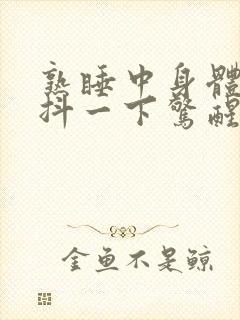 熟睡中身體
抖一下驚醒
金魚不是鯨